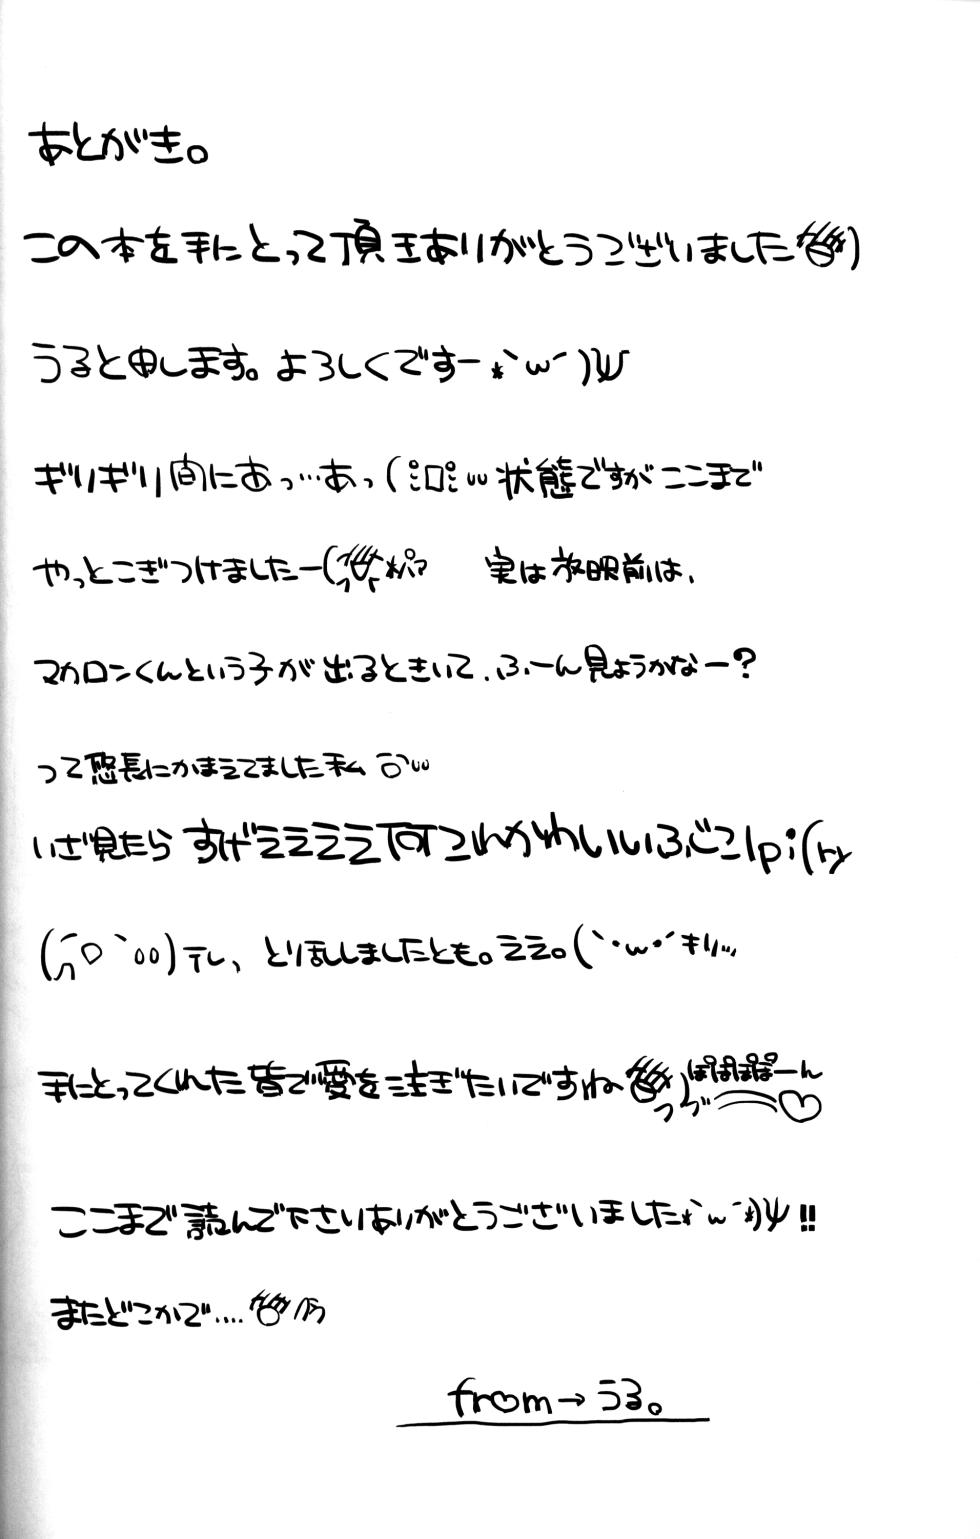 あとがき。
この本を手にとって頂きありがとうございました
うると申します。よろしくですー*`ω´)ψ
ギリギリ間にあっ…あっ( 状態ですがここまで
やっとこぎつけましたー( 実は放映前は、
マカロンくんという子が出るときいて、ふーん見ようかなー?
って悠長にかまえてました私
いざ見たら すげェェェェ何これかわいい
( テレ、とりみだしましたとも。ええ。(`・ω・´キリッ
手にとってくれた皆で愛を注ぎたいですね ぽぽぽぽーん
ここまで読んで下さいありがとうございました*`ω´*)ψ!!
またどこかで....
from→うる。